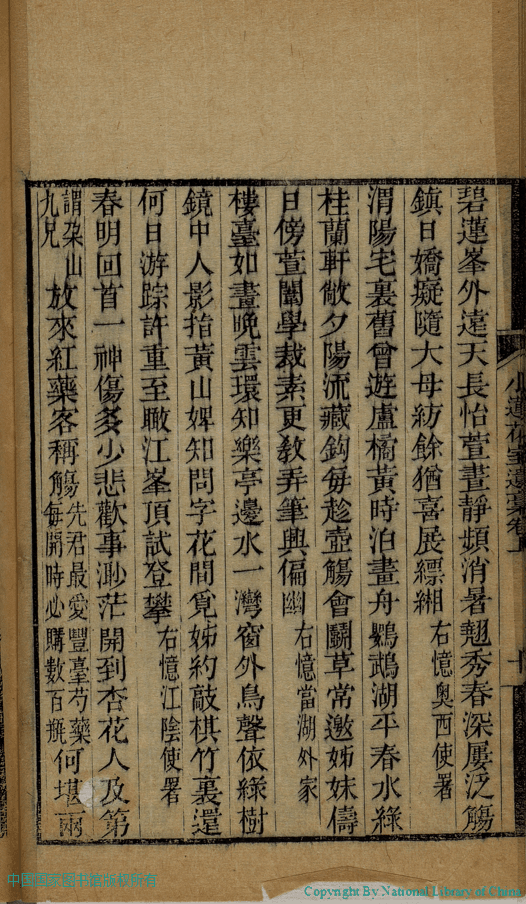 碧蓮峯外遠天長怡萱晝靜頻消暑翹秀春深屢泛觴
鎮日嬌癡隨大母紡餘猶喜展縹緗右憶奧西使署
渭陽宅裏舊曾遊盧橘黃時泊畫舟鸚鵡湖平春水綠
桂蘭軒敞夕陽流藏鈎每趁壺觴會鬭草常邀姊妹儔
日傍萱闈學裁素更教弄筆興偏幽右憶當湖外家
樓臺如畫晚雲環知樂亭邊水一灣窗外鳥聲依綠樹
鏡中人影指黃山婢知問字花間覓姊約敲棋竹裏還
何日游踪許重至瞰江峯頂試登攀右憶江陰使署
春明回首一神傷多少悲歡事渺茫開到杏花人及第
謂朶山九兄放來紅藥客稱觴先君最愛豐臺芍藥每開時必購數百瓶何堪兩
小蓮花室遺稾卷上
十
中国国家图书馆版权所有
Copyright By National Library of China